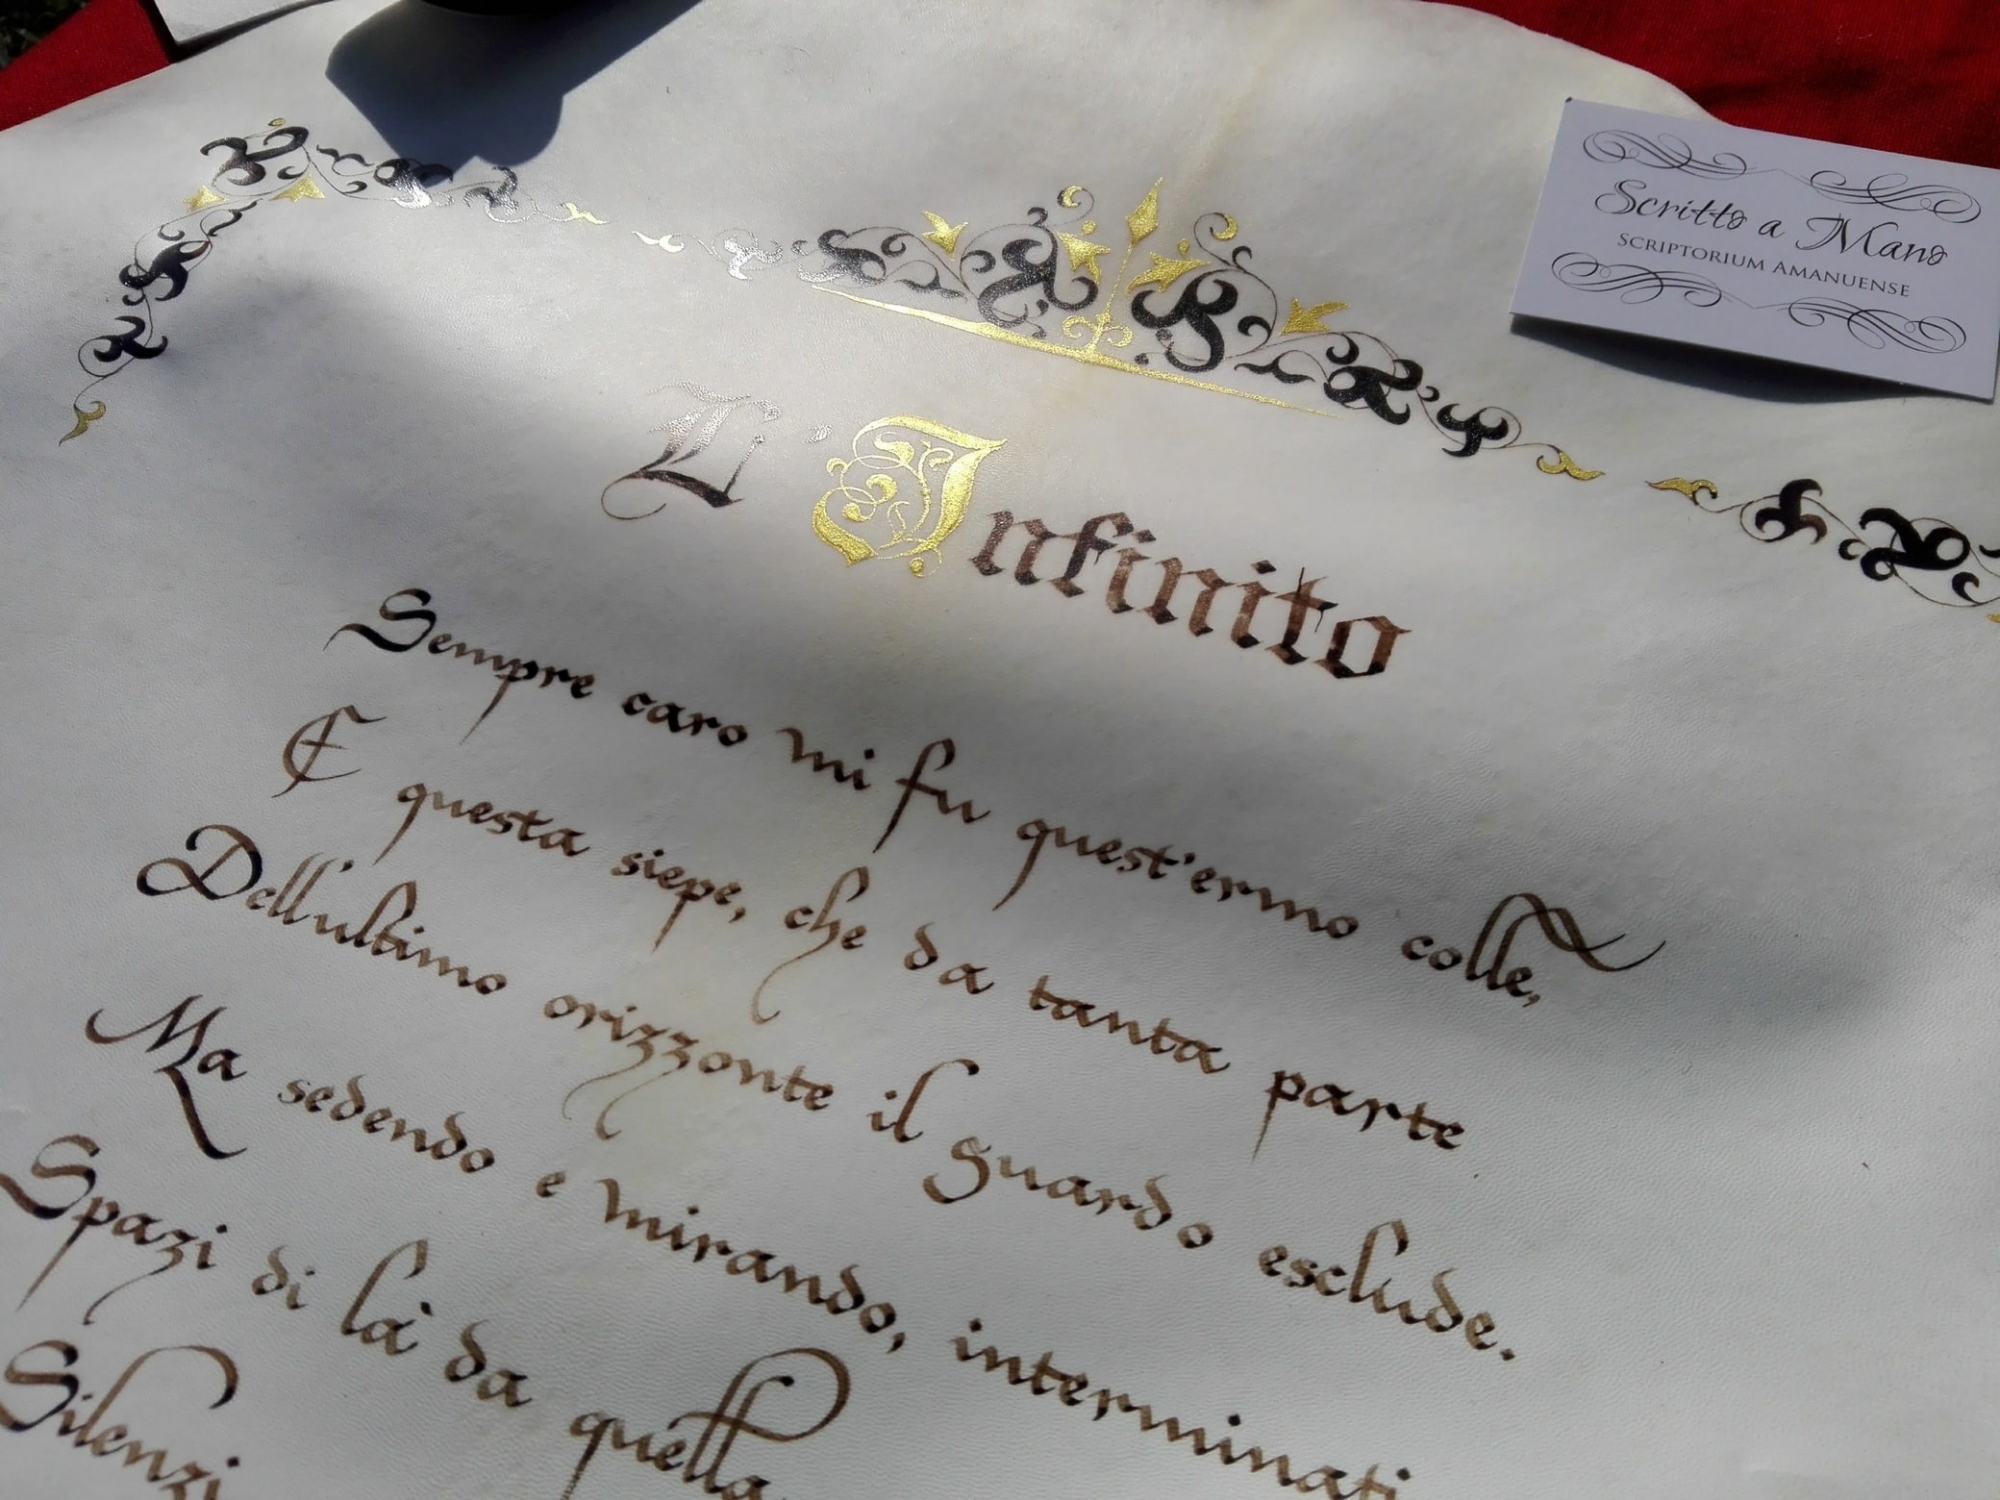 Scritto a Mano
SCRIPTORIUM AMANUENSE
L'Infinito
Sempre caro mi fu quest'ermo colle,
E questa siepe, che da tanta parte
Dell'ultimo orizzonte il guardo esclude.
Ma sedendo e mirando, interminati
Spazi di là da quella
Silenzi